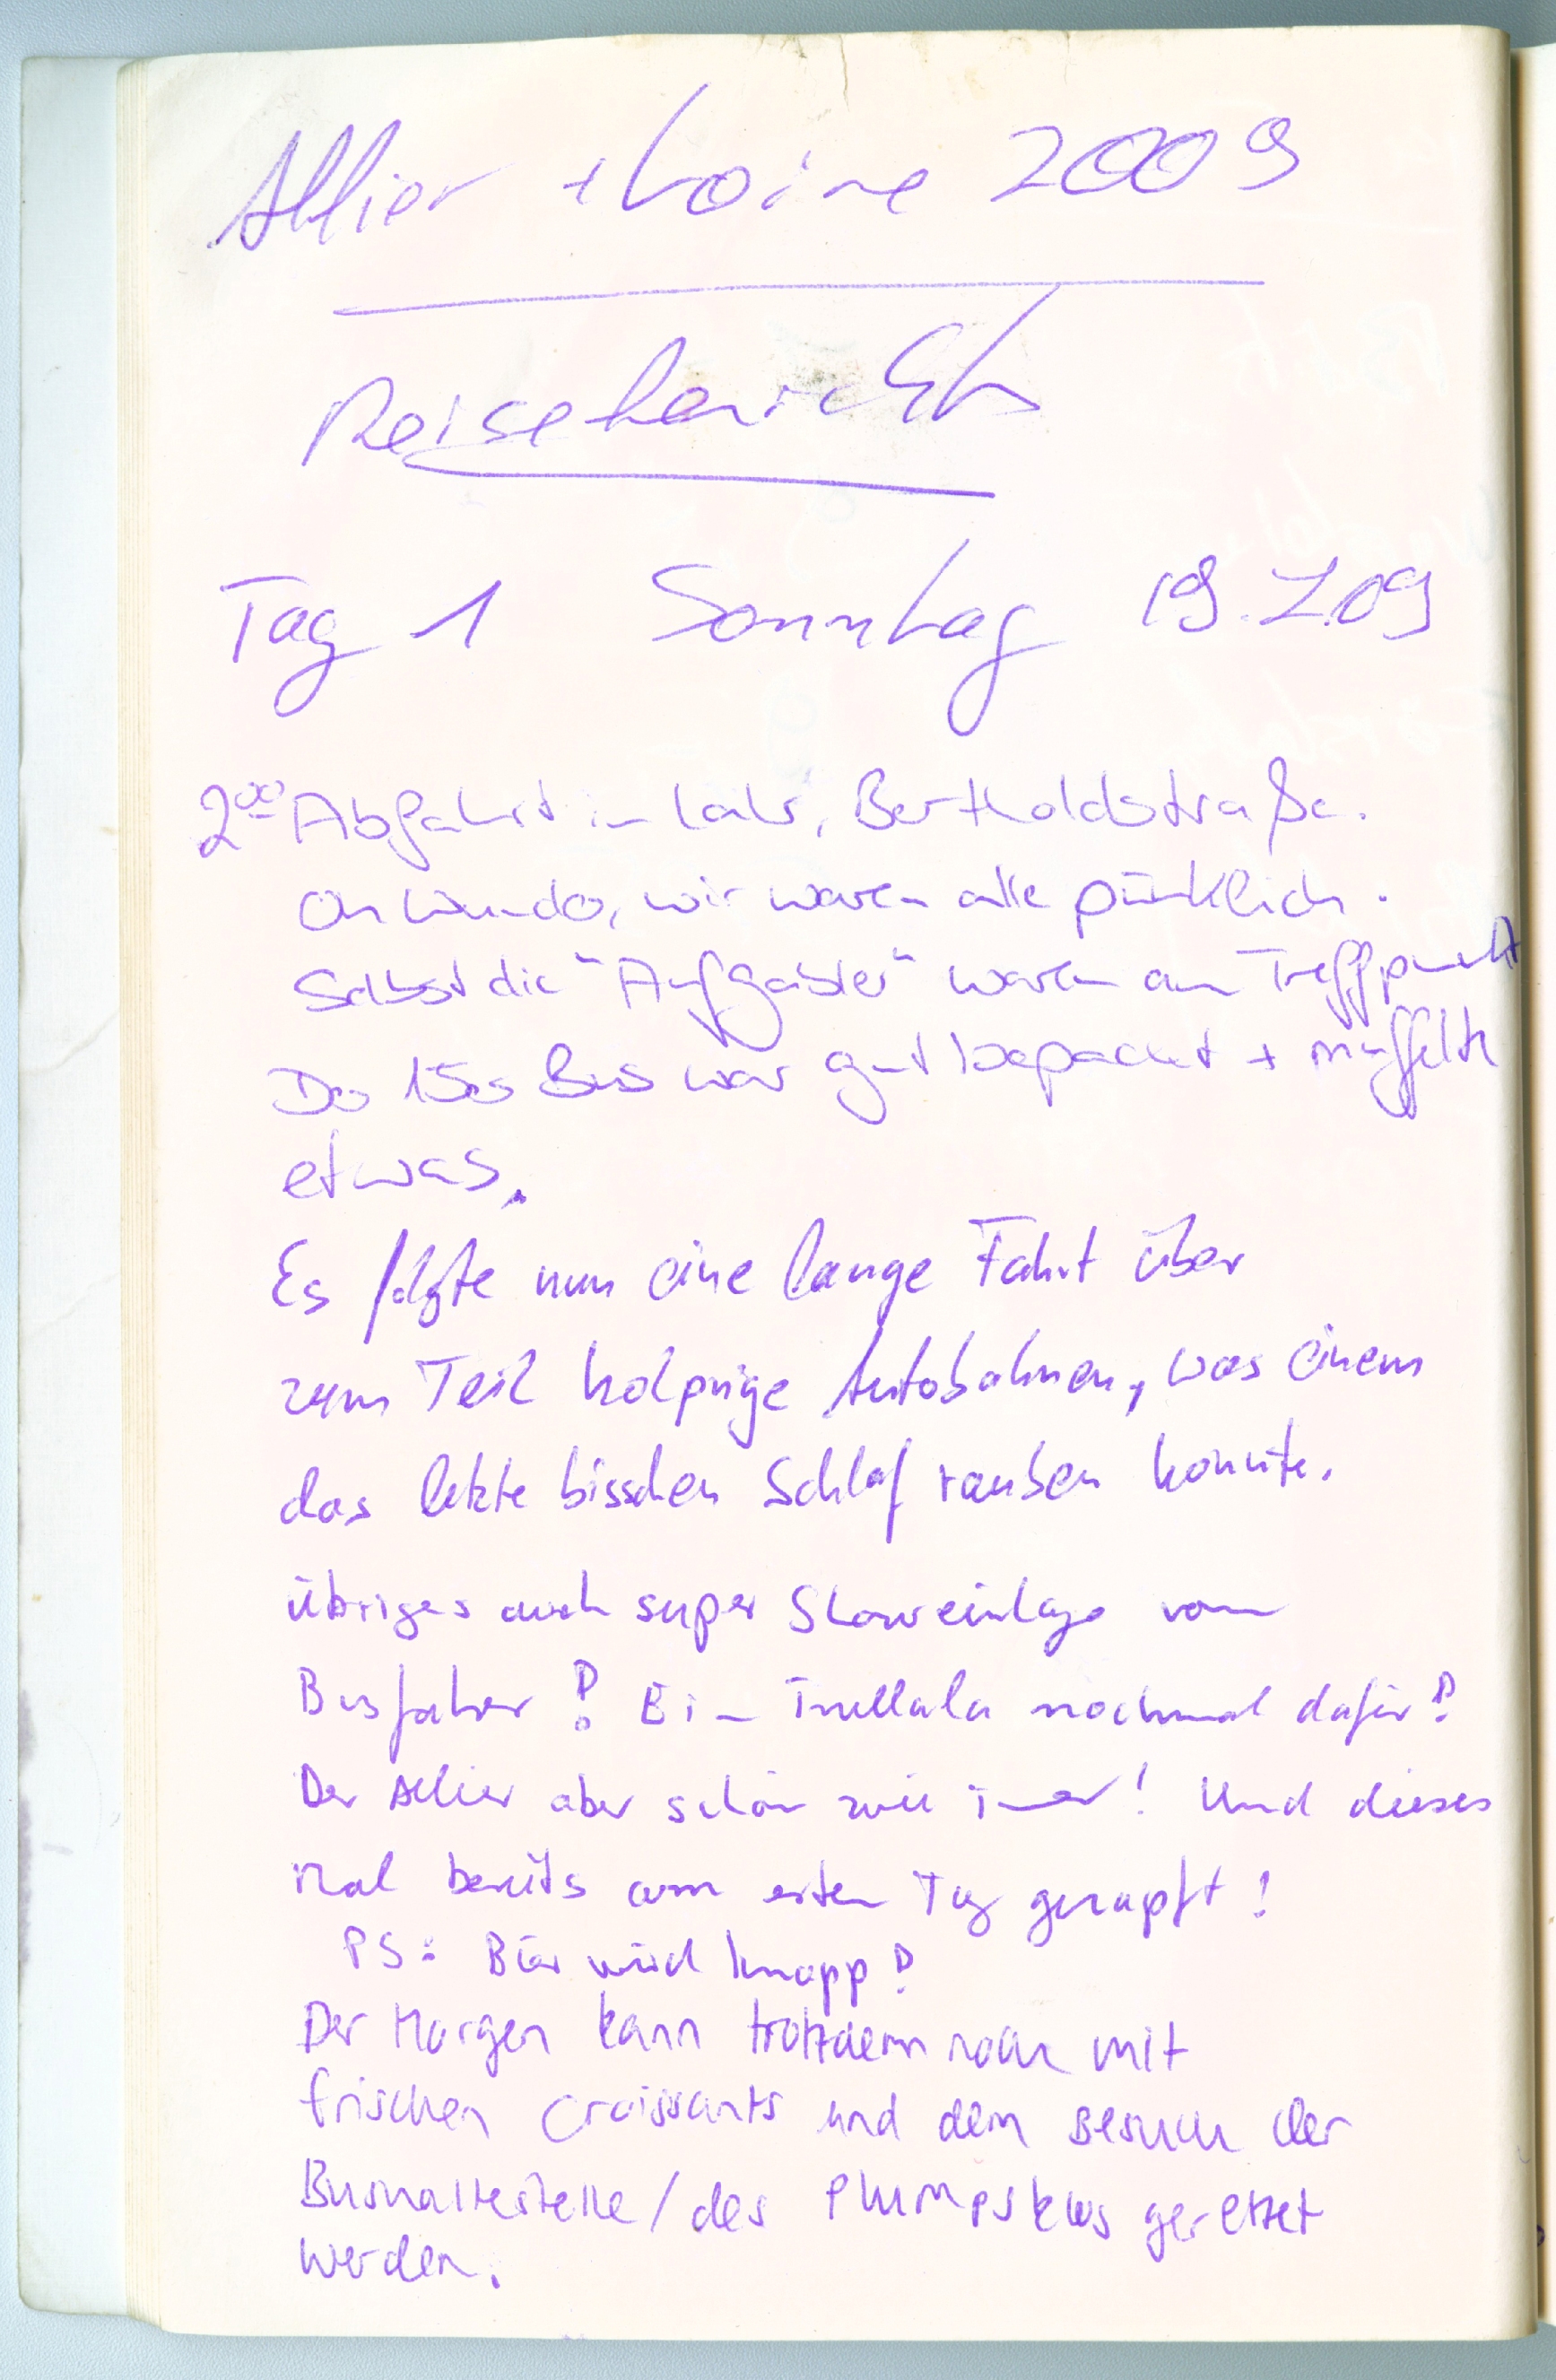 Allier + Loire 2009
Reisebericht
Tag 1 Sonntag 19.7.09
2⁰⁰ Abfahrt in Lahr, Bertholdstraße.
Oh Wunder, wir waren alle pünklich.
Selbst die "Aufgabler" waren am Treffpunkt
Der 15er Bus war gut bepackt + müffelte
etwas.
Es folgte nun eine lange Fahrt über
zum Teil holprige Autobahnen, was einem
das letzte bisschen Schlaf rauben konnte.
Übriges auch super Showeinlage vom
Busfahrer! Ein Trullala nochmal dafür!
Der Allier aber schön wie immer! Und dieses
mal bereits am ersten Tag gezapft!
PS: Bier wird knapp!
Der Morgen kann trotzdem noch mit
frischen Croissants und dem Besuch der
Bushaltestelle/des Plumpsklos gerettet
werden.